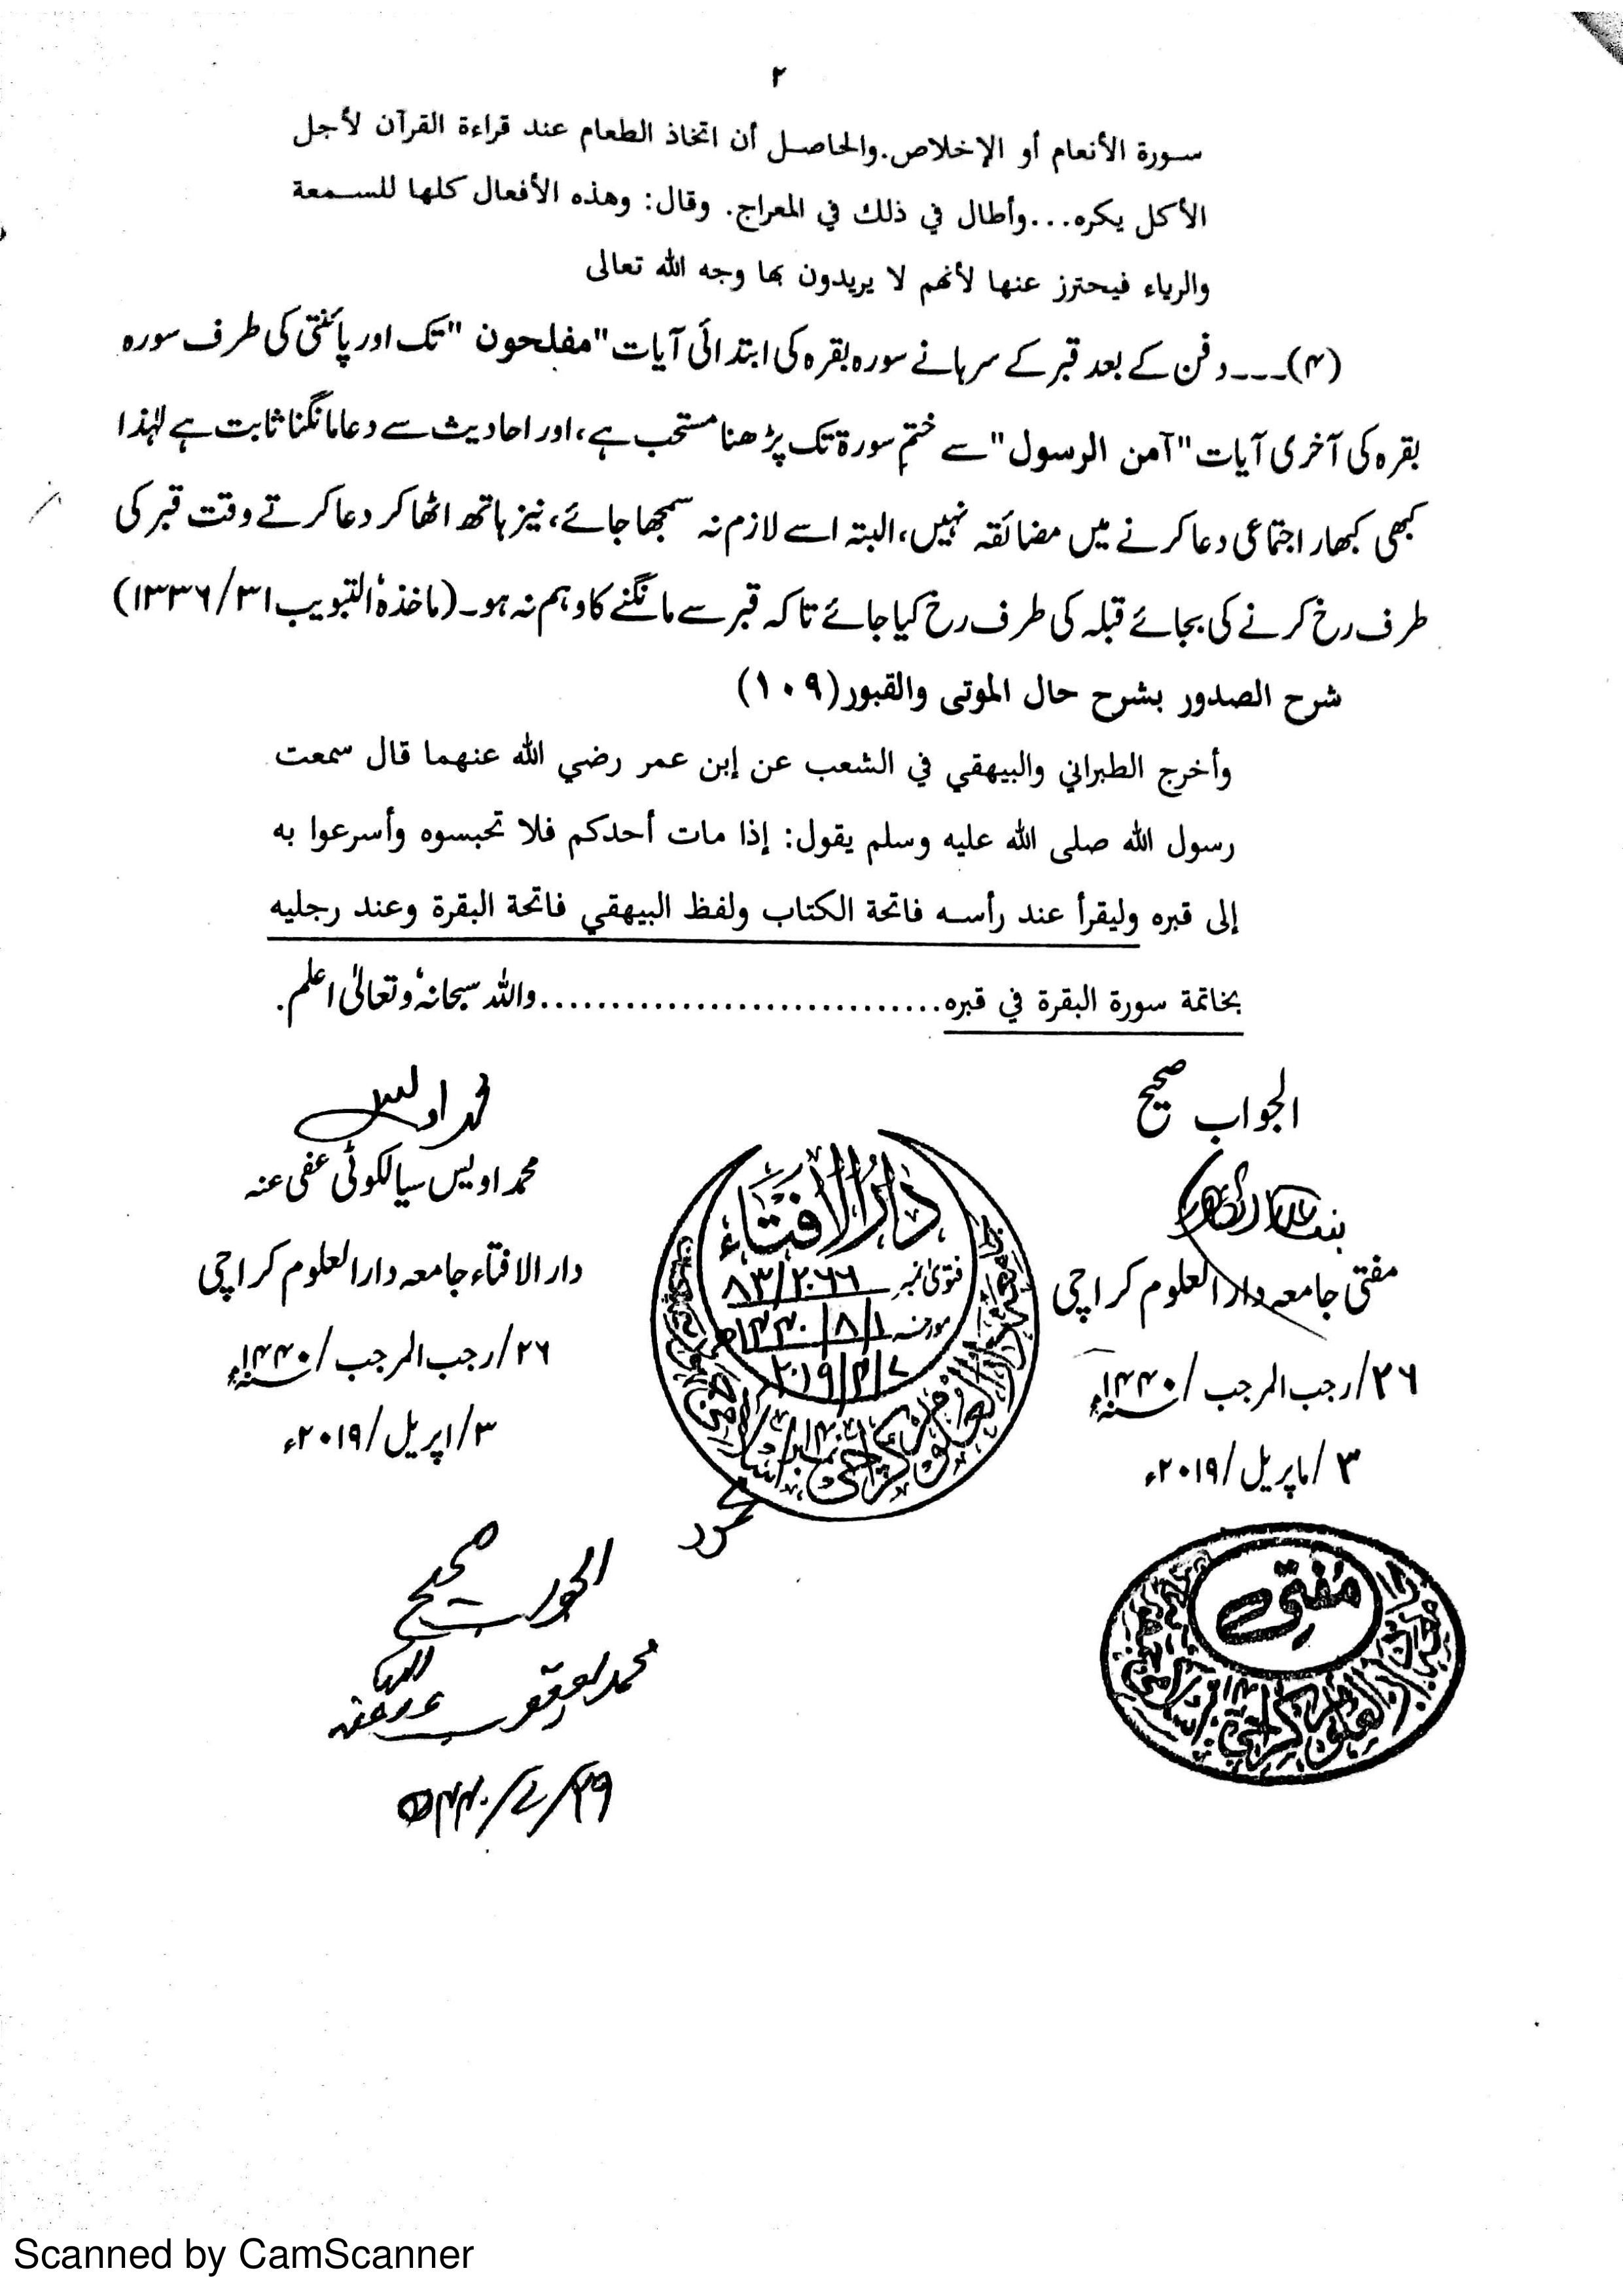 ٢
سورة الأنعام أو الإخلاص. والحاصل أن اتخاذ الطعام عند قراءة القرآن لأجل
الأكل يكره...وأطال في ذلك في المعراج. وقال: وهذه الأفعال كلها للسمعة
والرياء فيحترز عنها لأنهم لا يريدون بها وجه الله تعالى
(۴)۔۔۔دفن کے بعد قبر کے سرہانے سورہ بقرہ کی ابتدائی آیات "مفلحون" تک اور پائنتی کی طرف سورہ
بقرہ کی آخری آیات "آمن الرسول" سے ختم سورۃ تک پڑھنا مستحب ہے، اور احادیث سے دعا مانگنا ثابت ہے لہٰذا
کبھی کبھار اجتماعی دعا کرنے میں مضائقہ نہیں، البتہ اسے لازم نہ سمجھا جائے، نیز ہاتھ اٹھا کر دعا کرتے وقت قبر کی
طرف رخ کرنے کی بجائے قبلہ کی طرف رخ کیا جائے تاکہ قبر سے مانگنے کا وہم نہ ہو۔ (ماخذہٗ التبویب ۱۳۳۶/۳۱)
شرح الصدور بشرح حال الموتى والقبور (١٠٩)
وأخرج الطبراني والبيهقي في الشعب عن إبن عمر رضي الله عنهما قال سمعت
رسول الله صلى الله عليه وسلم يقول: إذا مات أحدكم فلا تحبسوه وأسرعوا به
إلى قبره وليقرأ عند رأسه فاتحة الكتاب ولفظ البيهقي فاتحة البقرة وعند رجليه
بخاتمة سورة البقرة في قبره............................واللہ سبحانہٗ وتعالیٰ اعلم.
الجواب صحیح
مفتی جامعہ دارالعلوم کراچی
۲۶/رجب المرجب/۱۴۴۰ھ
۳/اپریل/۲۰۱۹ء
محمد اویس
محمد اویس سیالکوٹی عفی عنہ
دارالافتاء جامعہ دارالعلوم کراچی
۲۶/رجب المرجب/۱۴۴۰ھ
۳/اپریل/۲۰۱۹ء
دارالافتاء
فتویٰ نمبر ۸۳/۲۰۶۶
مورخہ ۱/۸/۱۴۴۰ھ
الجواب صحیح
محمد یعقوب عفا اللہ عنہ
۲۹/۷/۱۴۴۰ھ
مفتی
Scanned by CamScanner